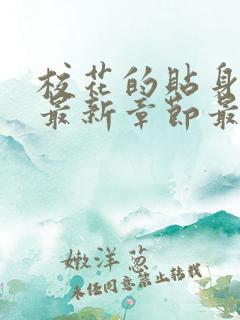 校花的贴身
最新章節最
嫩洋葱
未经同意禁止转载